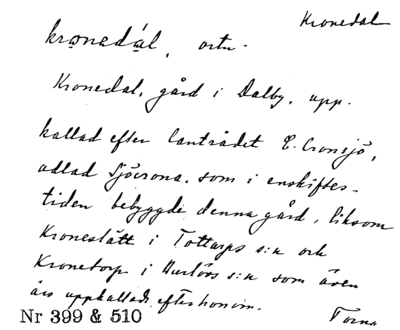 Kronedal
kronedál, ortn.
Kronedal, gård i Dalby, upp-
kallad efter lantrådet E. Cronsjö,
adlad Sjöcrona, som i enskiftes-
tiden bebyggde denna gård, liksom
Kroneslätt i Tottarps s:n och
Kronetorp i Burlövs s:n som även
äro uppkallade efter honom.
Nr 399 & 510 Torna